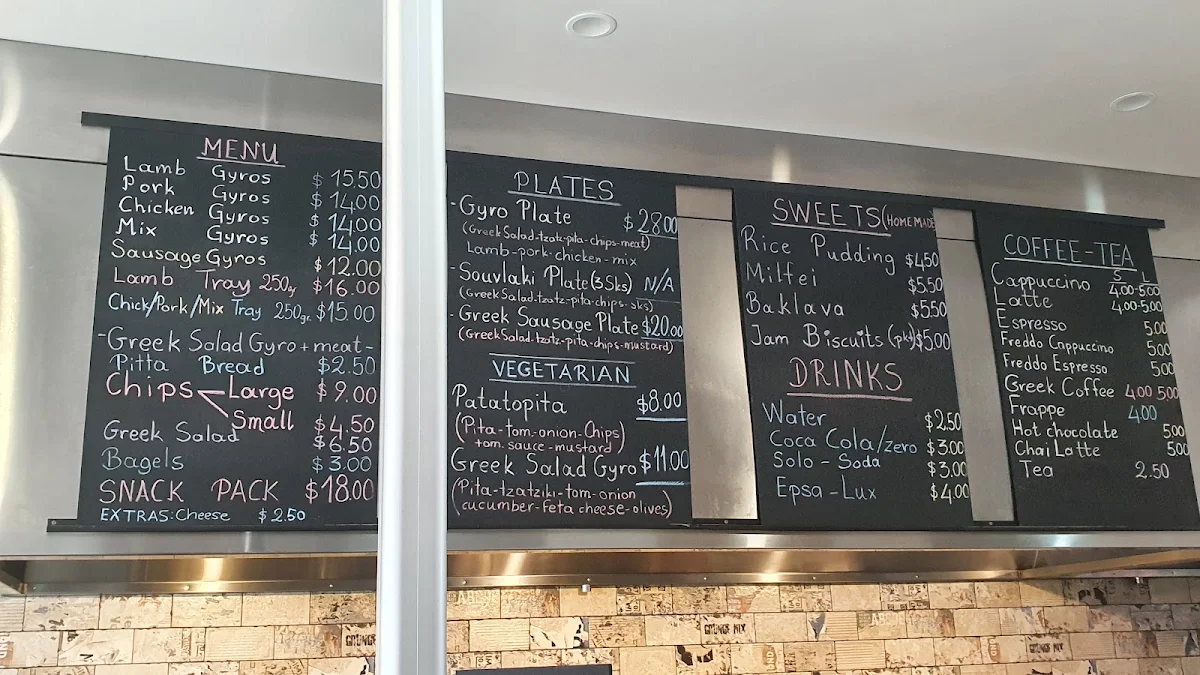 MENU
Lamb Gyros $15.50
Pork Gyros $14.00
Chicken Gyros $14.00
Mix Gyros $14.00
Sausage Gyros $12.00
Lamb Tray 250gr $16.00
Chick/Pork/Mix Tray 250gr. $15.00
-Greek Salad Gyro + meat-
Pitta Bread $2.50
Chips Large $9.00
Small $4.50
Greek Salad $6.50
Bagels $3.00
SNACK PACK $18.00
EXTRAS: Cheese $2.50
PLATES
-Gyro Plate $28.00
(Greek Salad-tzatz-pita-chips-meat)
Lamb-pork-chicken-mix
-Souvlaki Plate (3 Sks) N/A
(Greek Salad-tzatz-pita-chips-sks)
-Greek Sausage Plate $20.00
(Greek Salad-tzatz-pita-chips-mustard)
VEGETARIAN
Patatopita $8.00
(Pita-tom-onion-Chips)
tom.sauce-mustard)
Greek Salad Gyro $11.00
(Pita-tzatziki-tom-onion
cucumber-feta cheese-olives)
SWEETS (HOMEMADE
Rice Pudding $4.50
Milfei $5.50
Baklava $5.50
Jam Biscuits (pkt) $5.00
DRINKS
Water $2.50
Coca Cola/zero $3.00
Solo - Soda $3.00
Epsa - Lux $4.00
COFFEE-TEA
S L
Cappuccino 4.00-5.00
Latte 4.00-5.00
Espresso 5.00
Freddo Cappuccino 5.00
Freddo Espresso 5.00
Greek Coffee 4.00 5.00
Frappe 4.00
Hot chocolate 5.00
Chai Latte 5.00
Tea 2.50